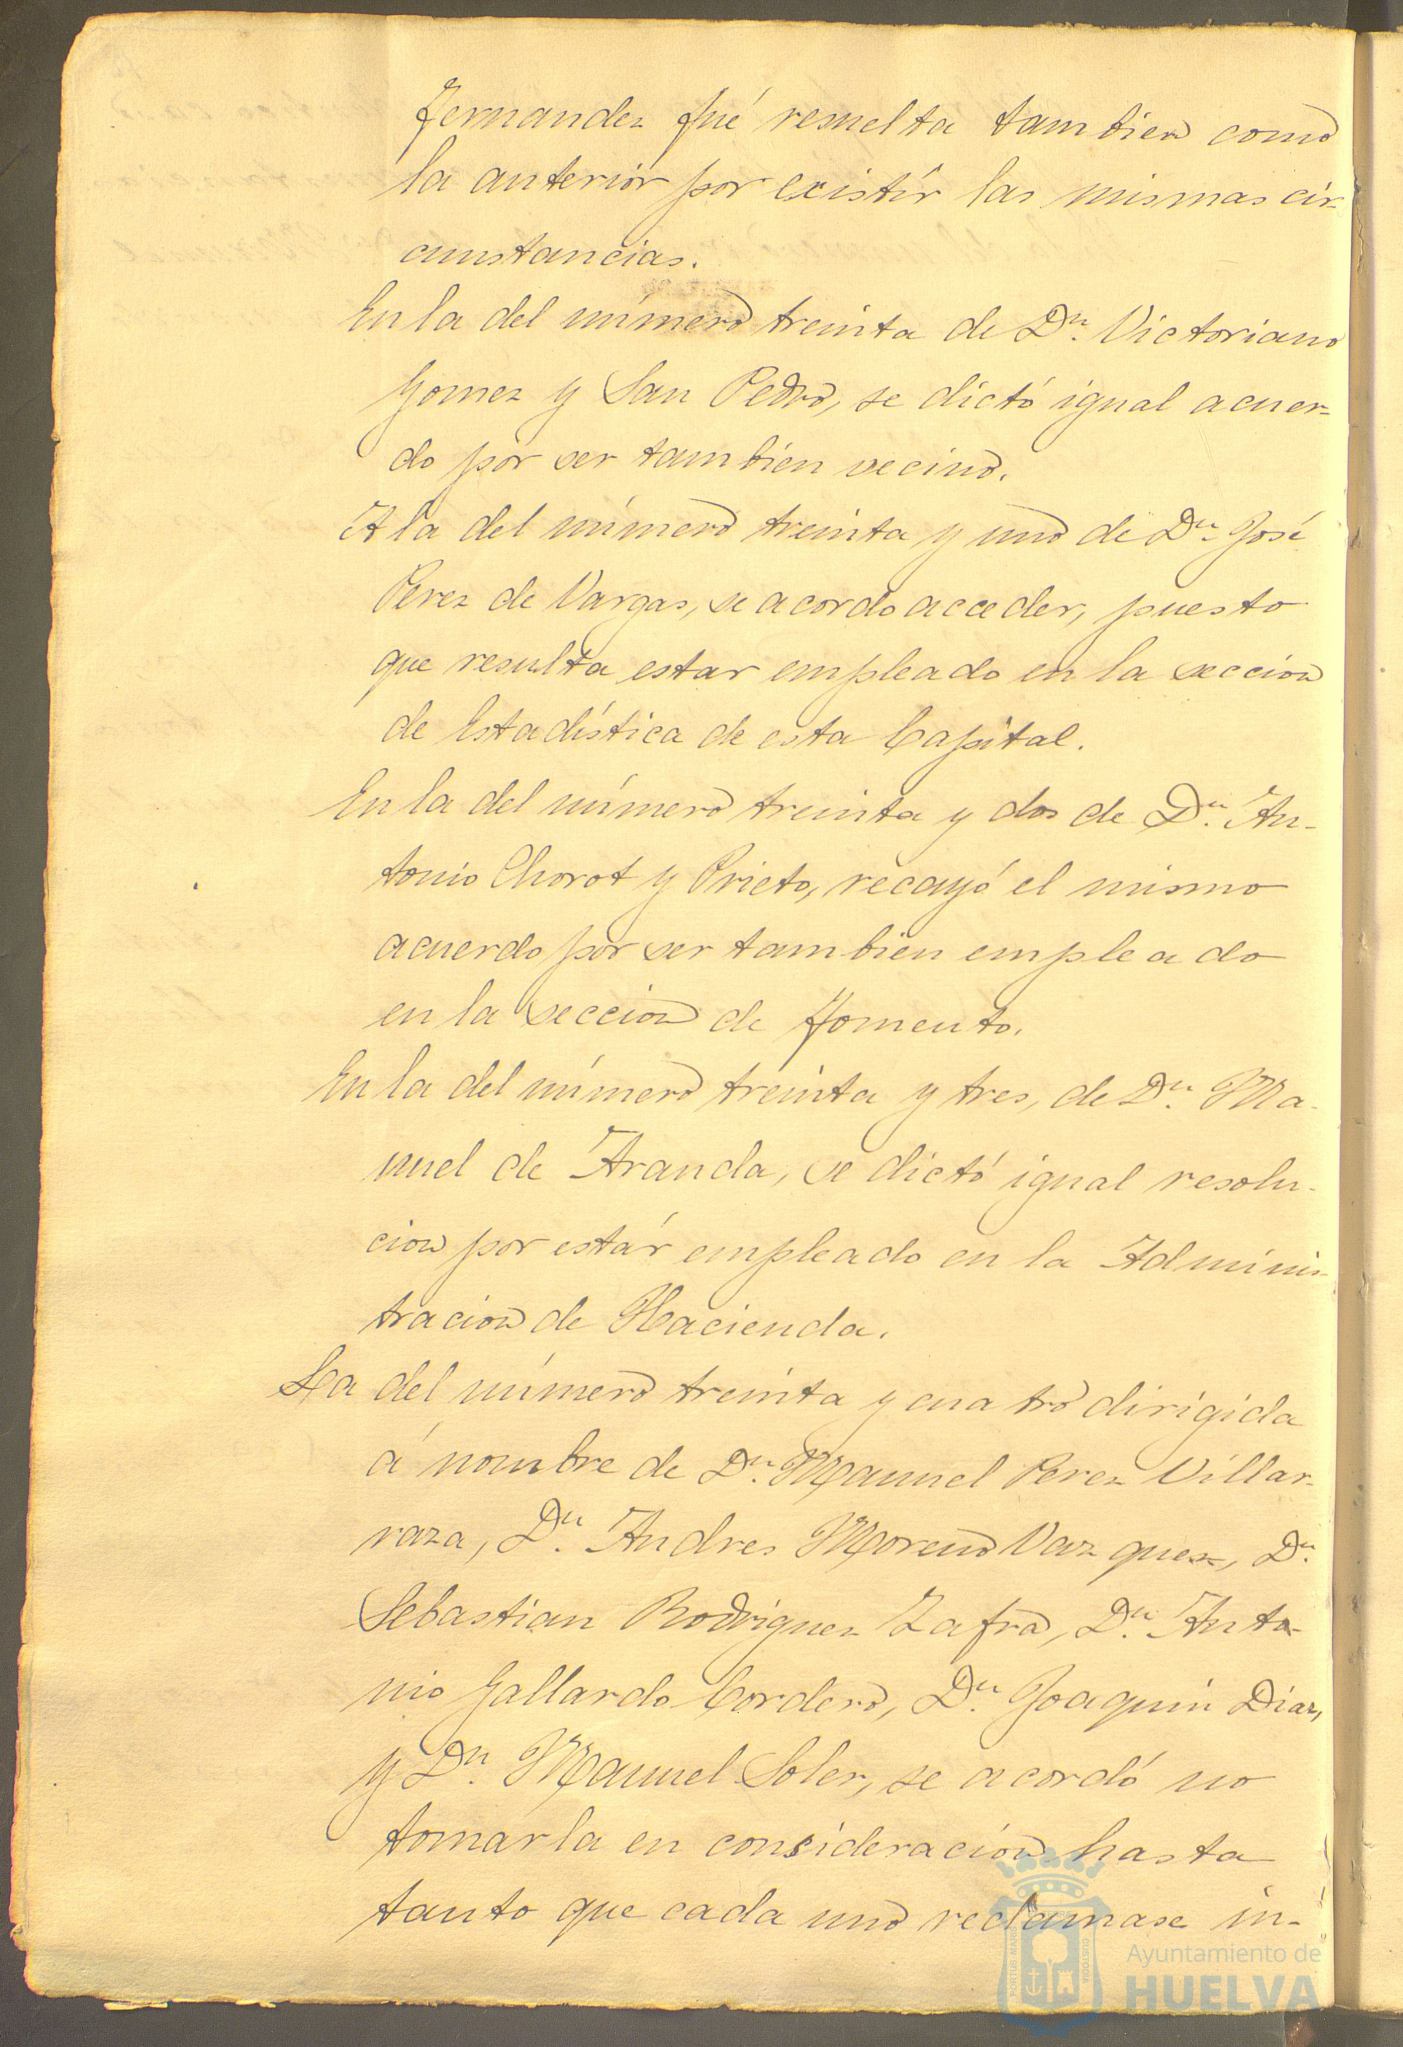 Fernandez fué resuelta tambien como
la anterior por existir las mismas cir-
cunstancias.
En la del número treinta de Dn. Victoriano
Gomez y San Pedro, se dictó igual acuer-
do por ser tambien vecino.
A la del número treinta y uno de Dn. José
Perez de Vargas, se acordo acceder, puesto
que resulta estar empleado en la seccion
de Estadística de esta Capital.
En la del número treinta y dos de Dn. An-
tonio Chorot y Prieto, recayó el mismo
acuerdo por ser tambien empleado
en la seccion de Fomento.
En la del número treinta y tres, de Dn. Ma-
nuel de Aranda, se dictó igual resolu-
cion por estár empleado en la Adminis-
tracion de Hacienda.
La del número treinta y cuatro dirigida
á nombre de Dn. Manuel Perez Villar-
raza, Dn. Andres Moreno Vazquez, Dn.
Sebastian Rodriguez Zafra, Dn. Anto-
nio Gallardo Cordero, Dn. Joaquin Diaz,
y Dn. Manuel Soler, se acordó no
tomarla en consideración hasta
tanto que cada uno reclamase in-
Ayuntamiento de
HUELVA